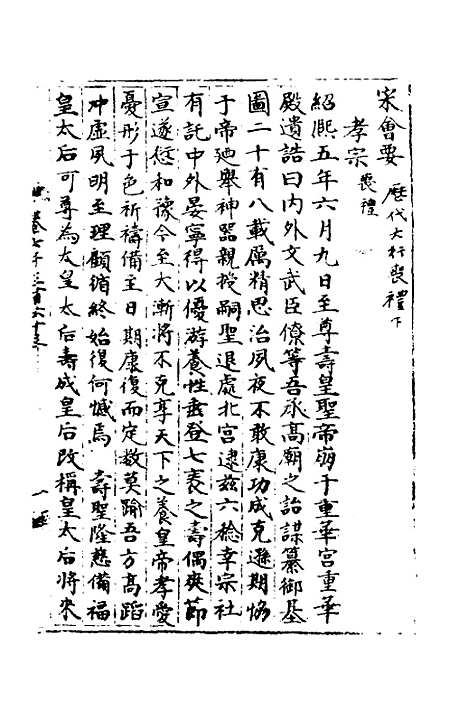 宋會要 歷代大行喪禮下
孝宗 喪禮
紹熙五年六月九日至尊壽皇聖帝崩于重華宮重華
殿遺誥曰內外文武臣僚等吾承高廟之詒謀纂御基
圖二十有八載厲精思治夙夜不敢康功成克遜期恊
于帝廼舉神器親授嗣聖退處北宮逮兹六稔幸宗社
有託中外晏寧得以優游養性垂登七袠之壽偶爽節
宣遂愆和豫今至大漸將不克享天下之養皇帝孝愛
憂形于色祈禱備至日期康復而定數莫踰吾方髙蹈
冲虛夙明至理顧循終始復何憾焉 壽聖隆慈備福
皇太后可尊為太皇太后壽成皇后改稱皇太后將來
卷七千三百六十三 一